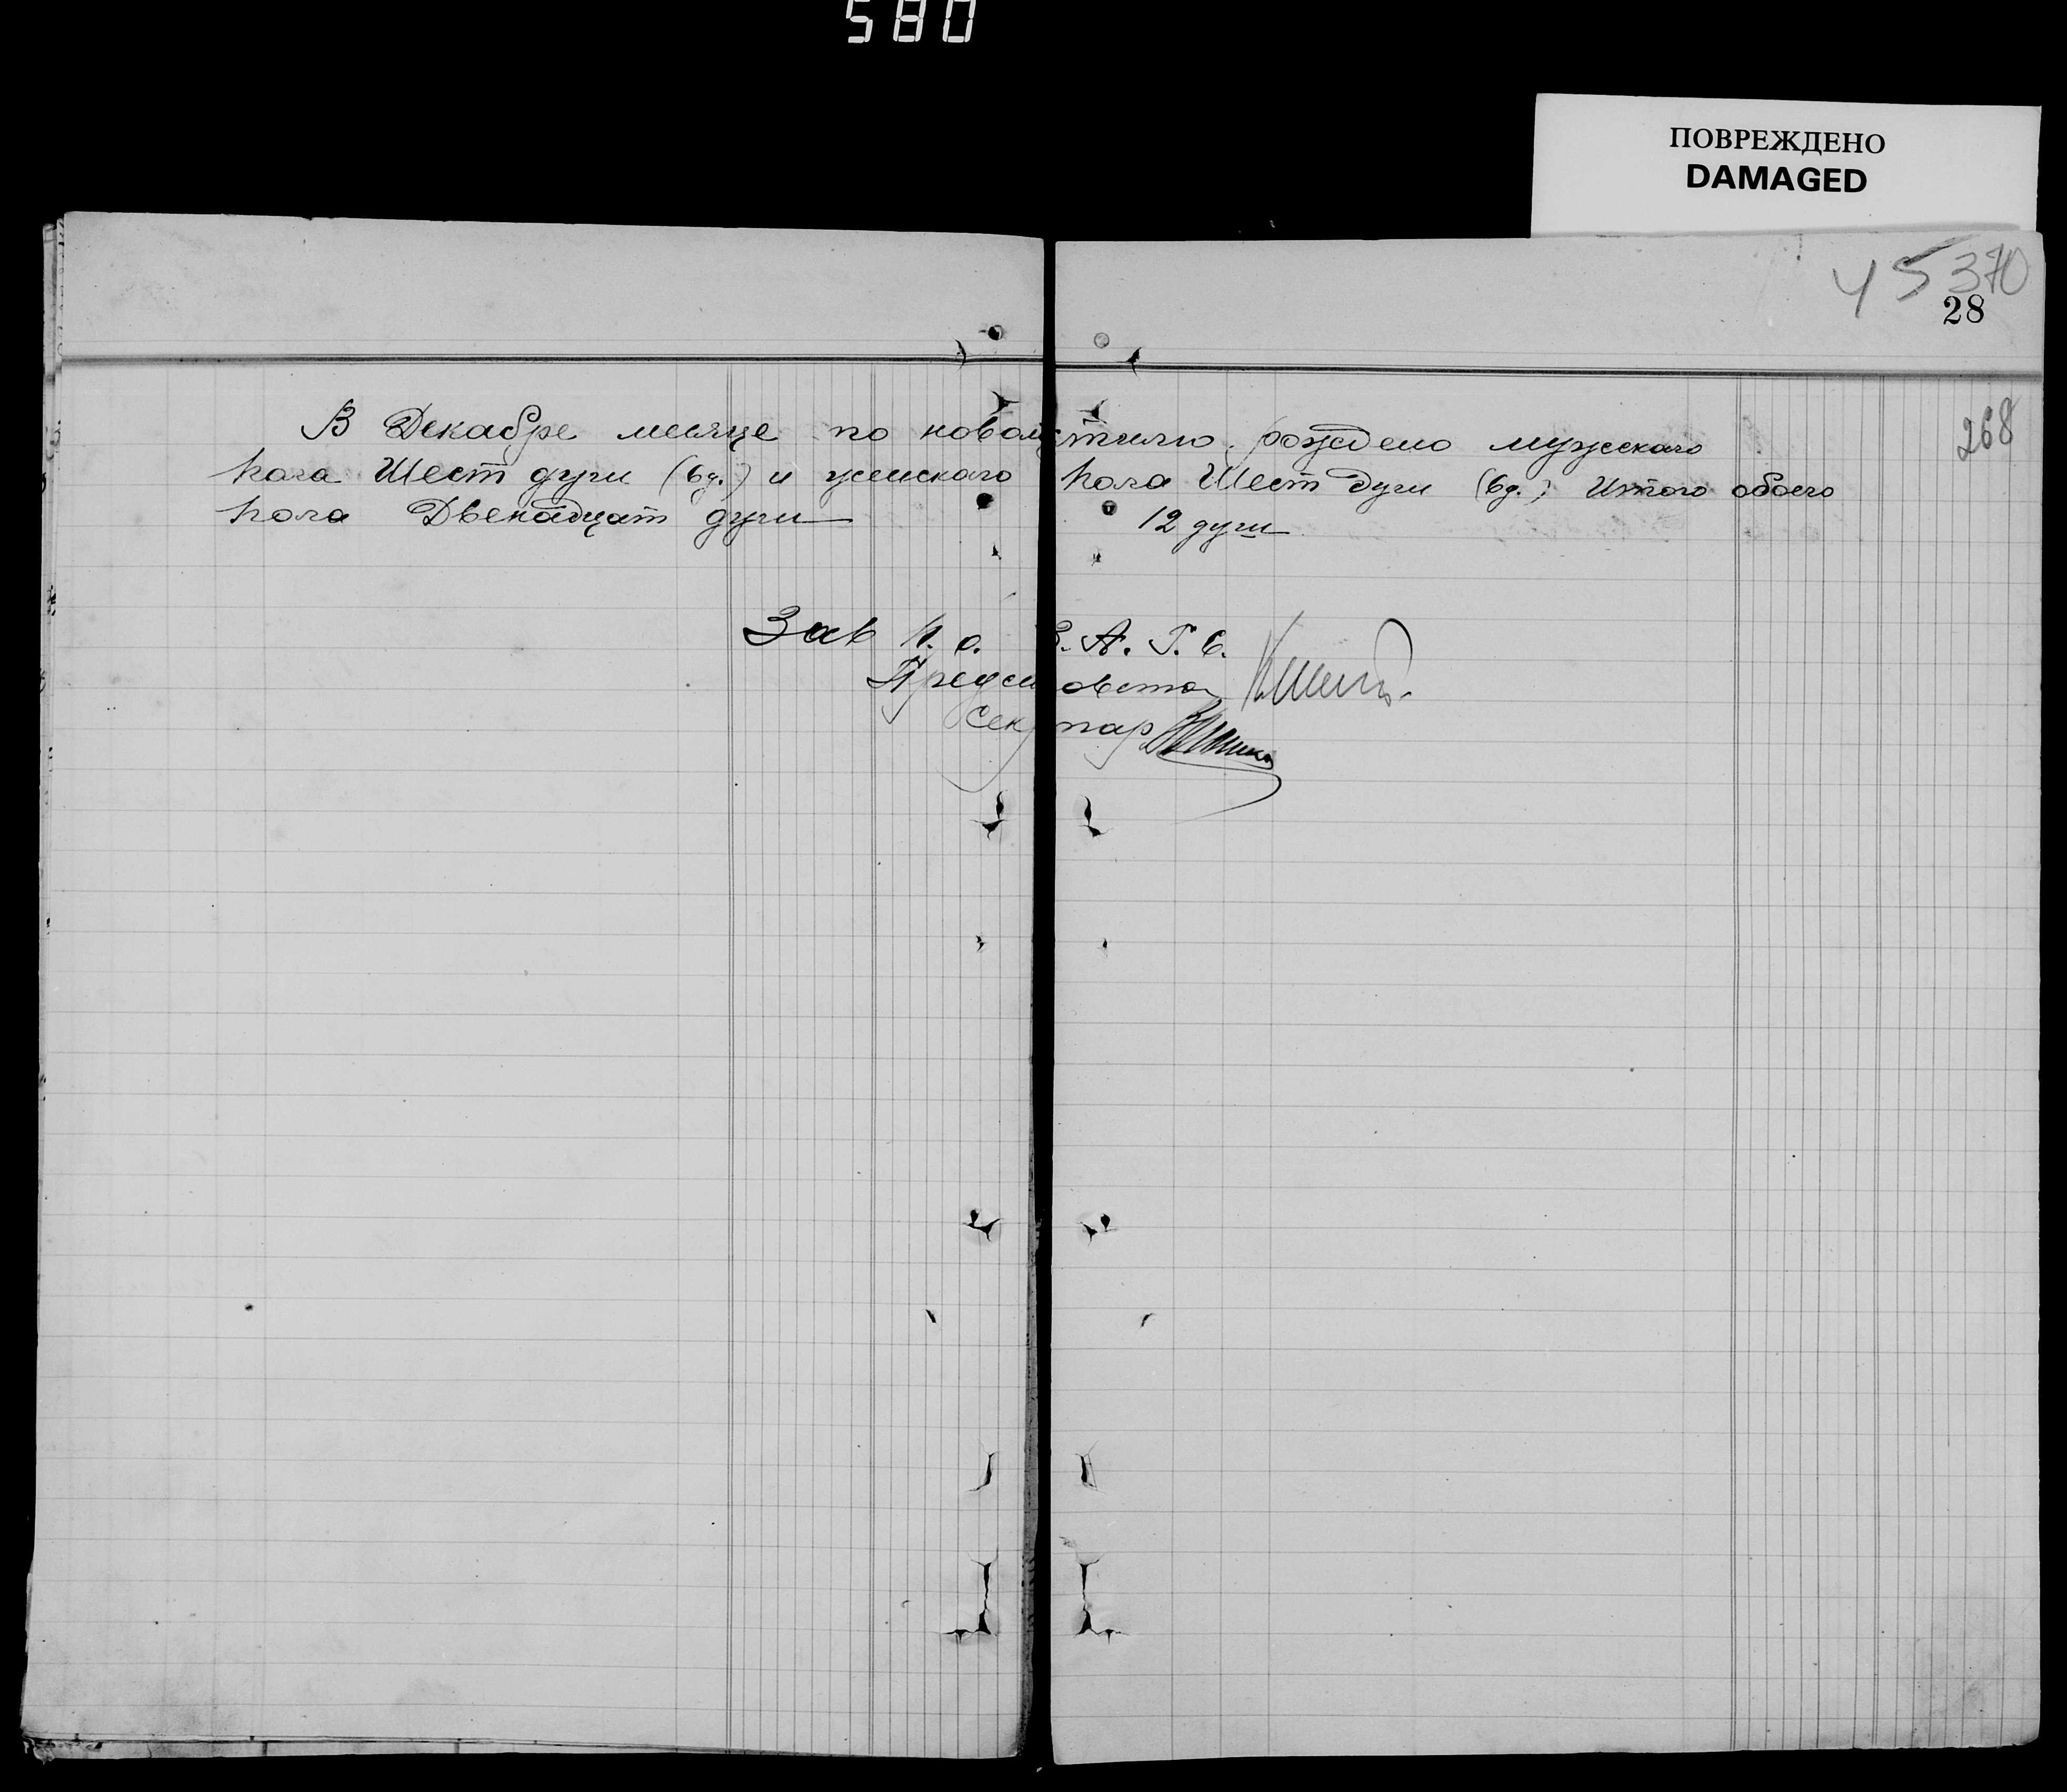 580
ПОВРЕЖДЕНО
DAMAGED
45 370
28
268
В Декабре месяце по новому стилю рождено мужского
пола Шест души (6 д.) и женского пола Шест души (6 д.) Итого обоего
пола Двенадцат души 12 души
Зав п. о. З. А. Г. С.
Предсовета
Секретар